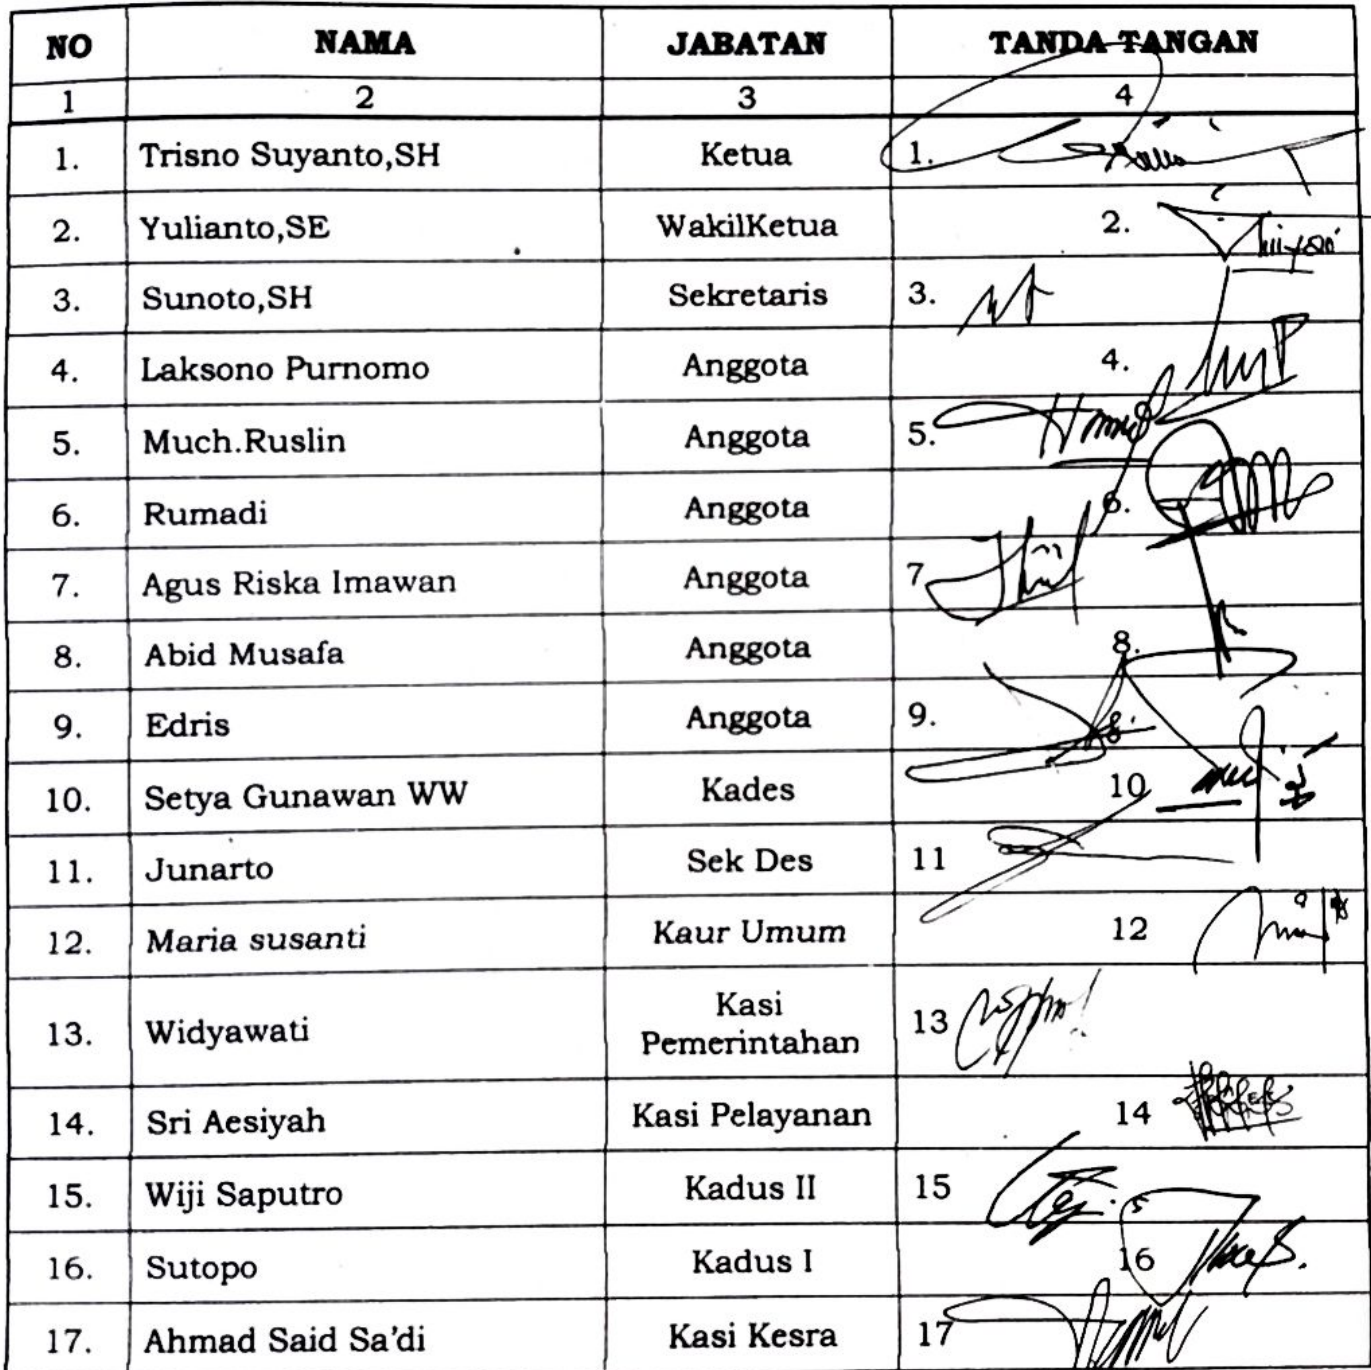 NO NAMA JABATAN TANDA TANGAN
1 2 3 4
1. Trisno Suyanto,SH Ketua 1.
2. Yulianto,SE WakilKetua 2.
3. Sunoto,SH Sekretaris 3.
4. Laksono Purnomo Anggota 4.
5. Much.Ruslin Anggota 5.
6. Rumadi Anggota 6.
7. Agus Riska Imawan Anggota 7
8. Abid Musafa Anggota 8.
9. Edris Anggota 9.
10. Setya Gunawan WW Kades 10
11. Junarto Sek Des 11
12. Maria susanti Kaur Umum 12
13. Widyawati Kasi Pemerintahan 13
14. Sri Aesiyah Kasi Pelayanan 14
15. Wiji Saputro Kadus II 15
16. Sutopo Kadus I 16
17. Ahmad Said Sa'di Kasi Kesra 17